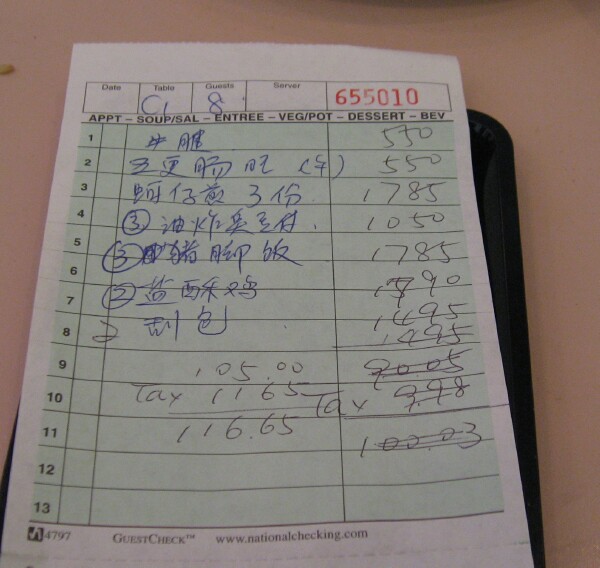 Date Table Guests Server
C1 8 655010
APPT – SOUP/SAL – ENTREE – VEG/POT – DESSERT – BEV
1 530
2 五更腸旺 (牛) 550
3 蚵仔煎 3份 1785
4 ③ 油炸臭豆付 1050
5 ③ 豬腳飯 1785
6 1890
7 ② 盐酥鸡 1495
8 2 刈包 1495
9 105.00 90.05
10 Tax 11.65 Tax 9.98
11 116.65 100.03
12
13
4797 GUESTCHECK™ www.nationalchecking.com